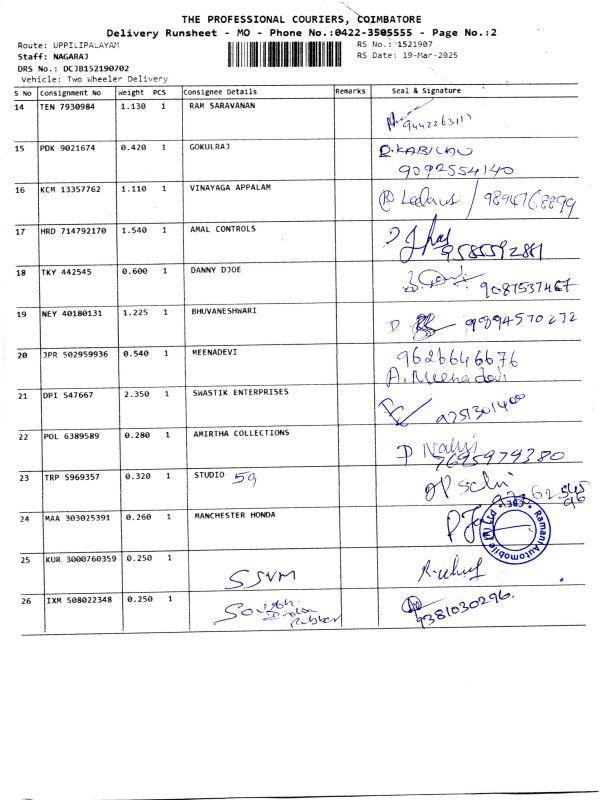 THE PROFESSIONAL COURIERS, COIMBATORE
Delivery Runsheet - MO - Phone No.:0422-3505555 - Page No.:2
Route: UPPILIPALAYAM RS No.: 1521907
Staff: NAGARAJ RS Date: 19-Mar-2025
DRS No.: DCJB152190702
Vehicle: Two Wheeler Delivery
S No Consignment No Weight PCS Consignee Details Remarks Seal & Signature
14 TEN 7930984 1.130 1 RAM SARAVANAN
15 PDK 9021674 0.420 1 GOKULRAJ
9092554140
16 KCM 13357762 1.110 1 VINAYAGA APPALAM 9894768899
17 HRD 714792170 1.540 1 AMAL CONTROLS
18 TKY 442545 0.600 1 DANNY DJOE
9087537467
19 NEY 40180131 1.225 1 BHUVANESHWARI 9894570272
20 JPR 502959936 0.540 1 MEENADEVI 9626646676
A. Meenadevi
21 DPI 547667 2.350 1 SWASTIK ENTERPRISES
22 POL 6389589 0.280 1 AMIRTHA COLLECTIONS
7695979380
23 TRP 5969357 0.320 1 STUDIO 59
24 MAA 303025391 0.260 1 MANCHESTER HONDA
Ramani Automobile (P) Ltd
25 KUR 3000760359 0.250 1 SSVM
26 IXM 508022348 0.250 1 South India Rubber
9381030296.